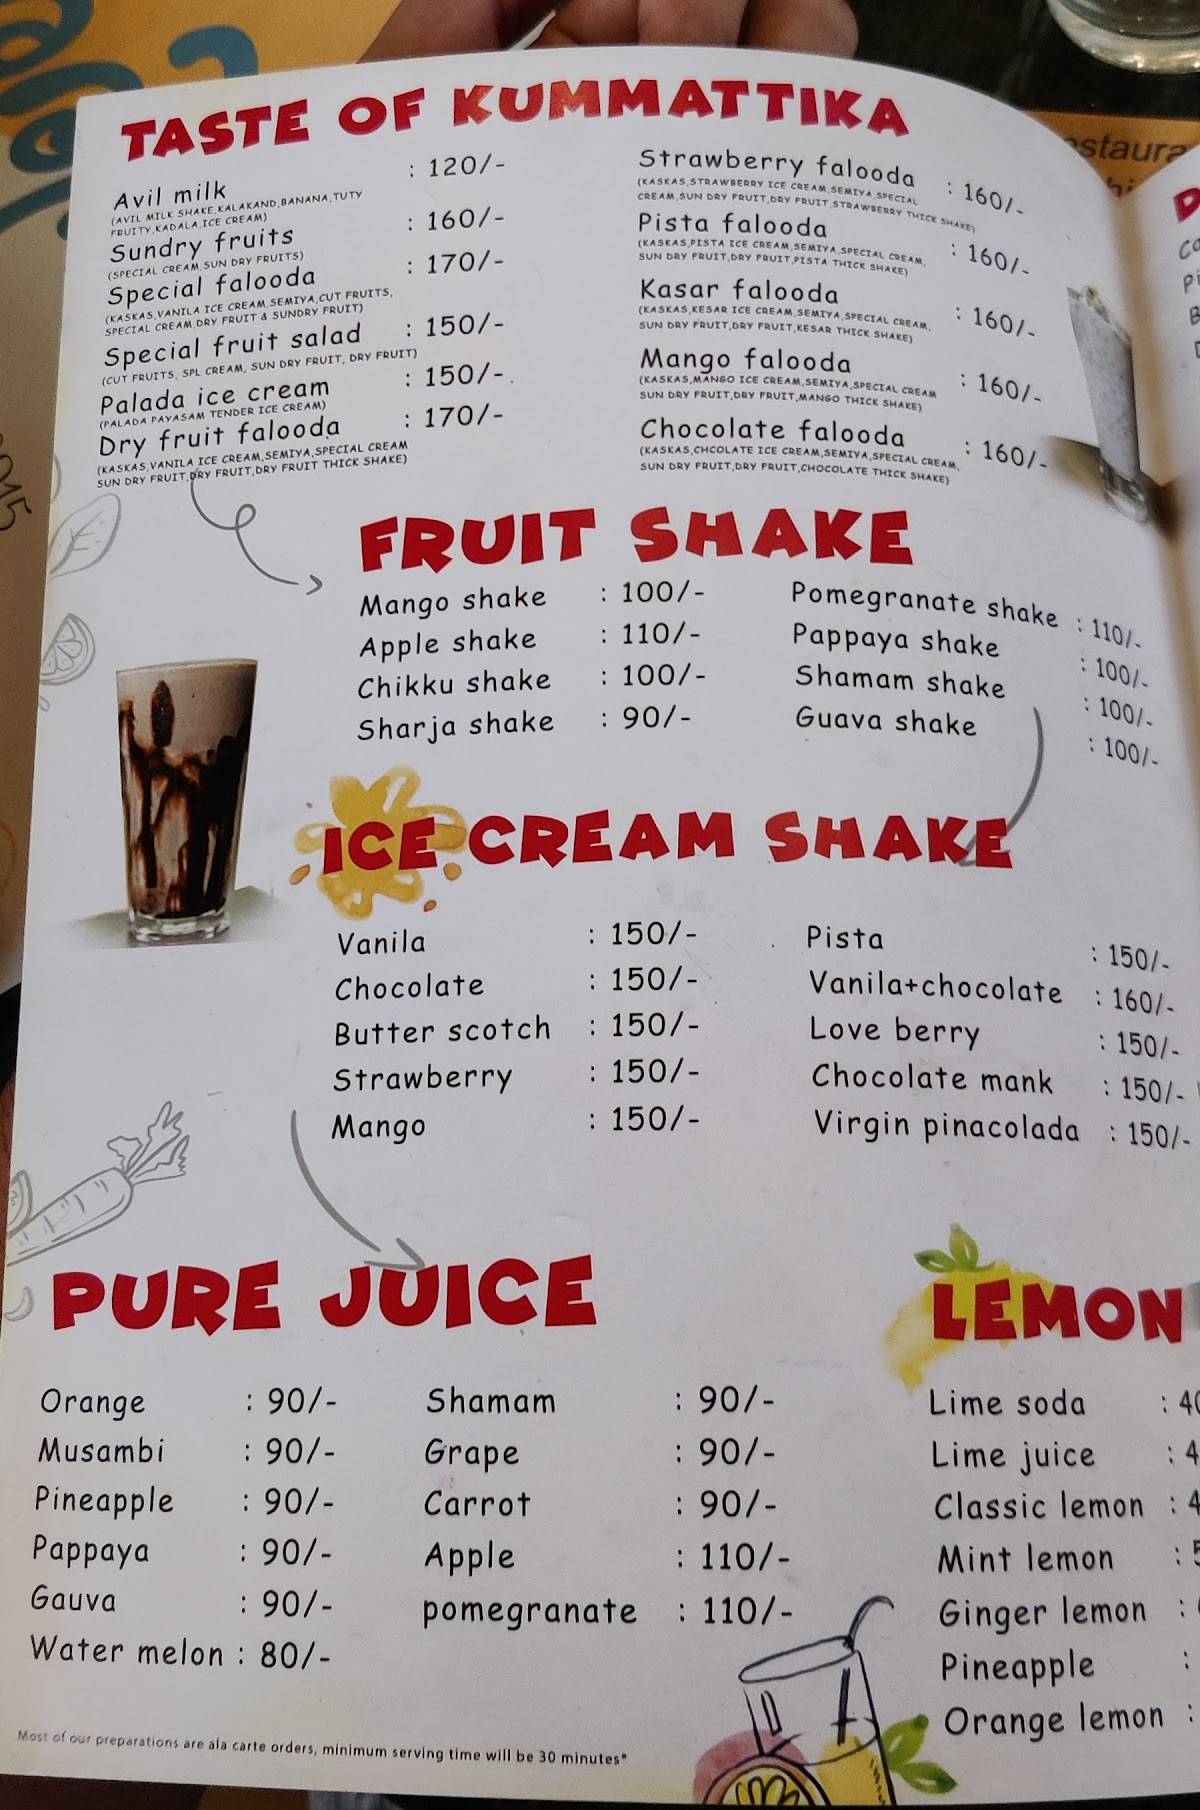 TASTE OF KUMMATTIKA
Avil milk : 120/-
(AVIL MILK SHAKE,KALAKAND,BANANA,TUTY
FRUITY,KADALA,ICE CREAM)
Sundry fruits : 160/-
(SPECIAL CREAM,SUN DRY FRUITS)
Special falooda : 170/-
(KASKAS,VANILA ICE CREAM,SEMIYA,CUT FRUITS,
SPECIAL CREAM,DRY FRUIT & SUNDRY FRUIT)
Special fruit salad : 150/-
(CUT FRUITS, SPL CREAM, SUN DRY FRUIT, DRY FRUIT)
Palada ice cream : 150/-
(PALADA PAYASAM TENDER ICE CREAM)
Dry fruit falooda : 170/-
(KASKAS,VANILA ICE CREAM,SEMIYA,SPECIAL CREAM
SUN DRY FRUIT,DRY FRUIT,DRY FRUIT THICK SHAKE)
Strawberry falooda : 160/-
(KASKAS,STRAWBERRY ICE CREAM,SEMIYA,SPECIAL
CREAM,SUN DRY FRUIT,DRY FRUIT,STRAWBERRY THICK SHAKE)
Pista falooda : 160/-
(KASKAS,PISTA ICE CREAM,SEMIYA,SPECIAL CREAM,
SUN DRY FRUIT,DRY FRUIT,PISTA THICK SHAKE)
Kasar falooda : 160/-
(KASKAS,KESAR ICE CREAM,SEMIYA,SPECIAL CREAM,
SUN DRY FRUIT,DRY FRUIT,KESAR THICK SHAKE)
Mango falooda : 160/-
(KASKAS,MANGO ICE CREAM,SEMIYA,SPECIAL CREAM
SUN DRY FRUIT,DRY FRUIT,MANGO THICK SHAKE)
Chocolate falooda : 160/-
(KASKAS,CHCOLATE ICE CREAM,SEMIYA,SPECIAL CREAM,
SUN DRY FRUIT,DRY FRUIT,CHOCOLATE THICK SHAKE)
FRUIT SHAKE
Mango shake : 100/-
Apple shake : 110/-
Chikku shake : 100/-
Sharja shake : 90/-
Pomegranate shake : 110/-
Pappaya shake : 100/-
Shamam shake : 100/-
Guava shake : 100/-
ICE CREAM SHAKE
Vanila : 150/-
Chocolate : 150/-
Butter scotch : 150/-
Strawberry : 150/-
Mango : 150/-
Pista : 150/-
Vanila+chocolate : 160/-
Love berry : 150/-
Chocolate mank : 150/-
Virgin pinacolada : 150/-
PURE JUICE
Orange : 90/-
Musambi : 90/-
Pineapple : 90/-
Pappaya : 90/-
Gauva : 90/-
Water melon : 80/-
Shamam : 90/-
Grape : 90/-
Carrot : 90/-
Apple : 110/-
pomegranate : 110/-
LEMON
Lime soda : 40
Lime juice : 4
Classic lemon : 4
Mint lemon : 5
Ginger lemon :
Pineapple :
Orange lemon :
Most of our preparations are ala carte orders, minimum serving time will be 30 minutes*